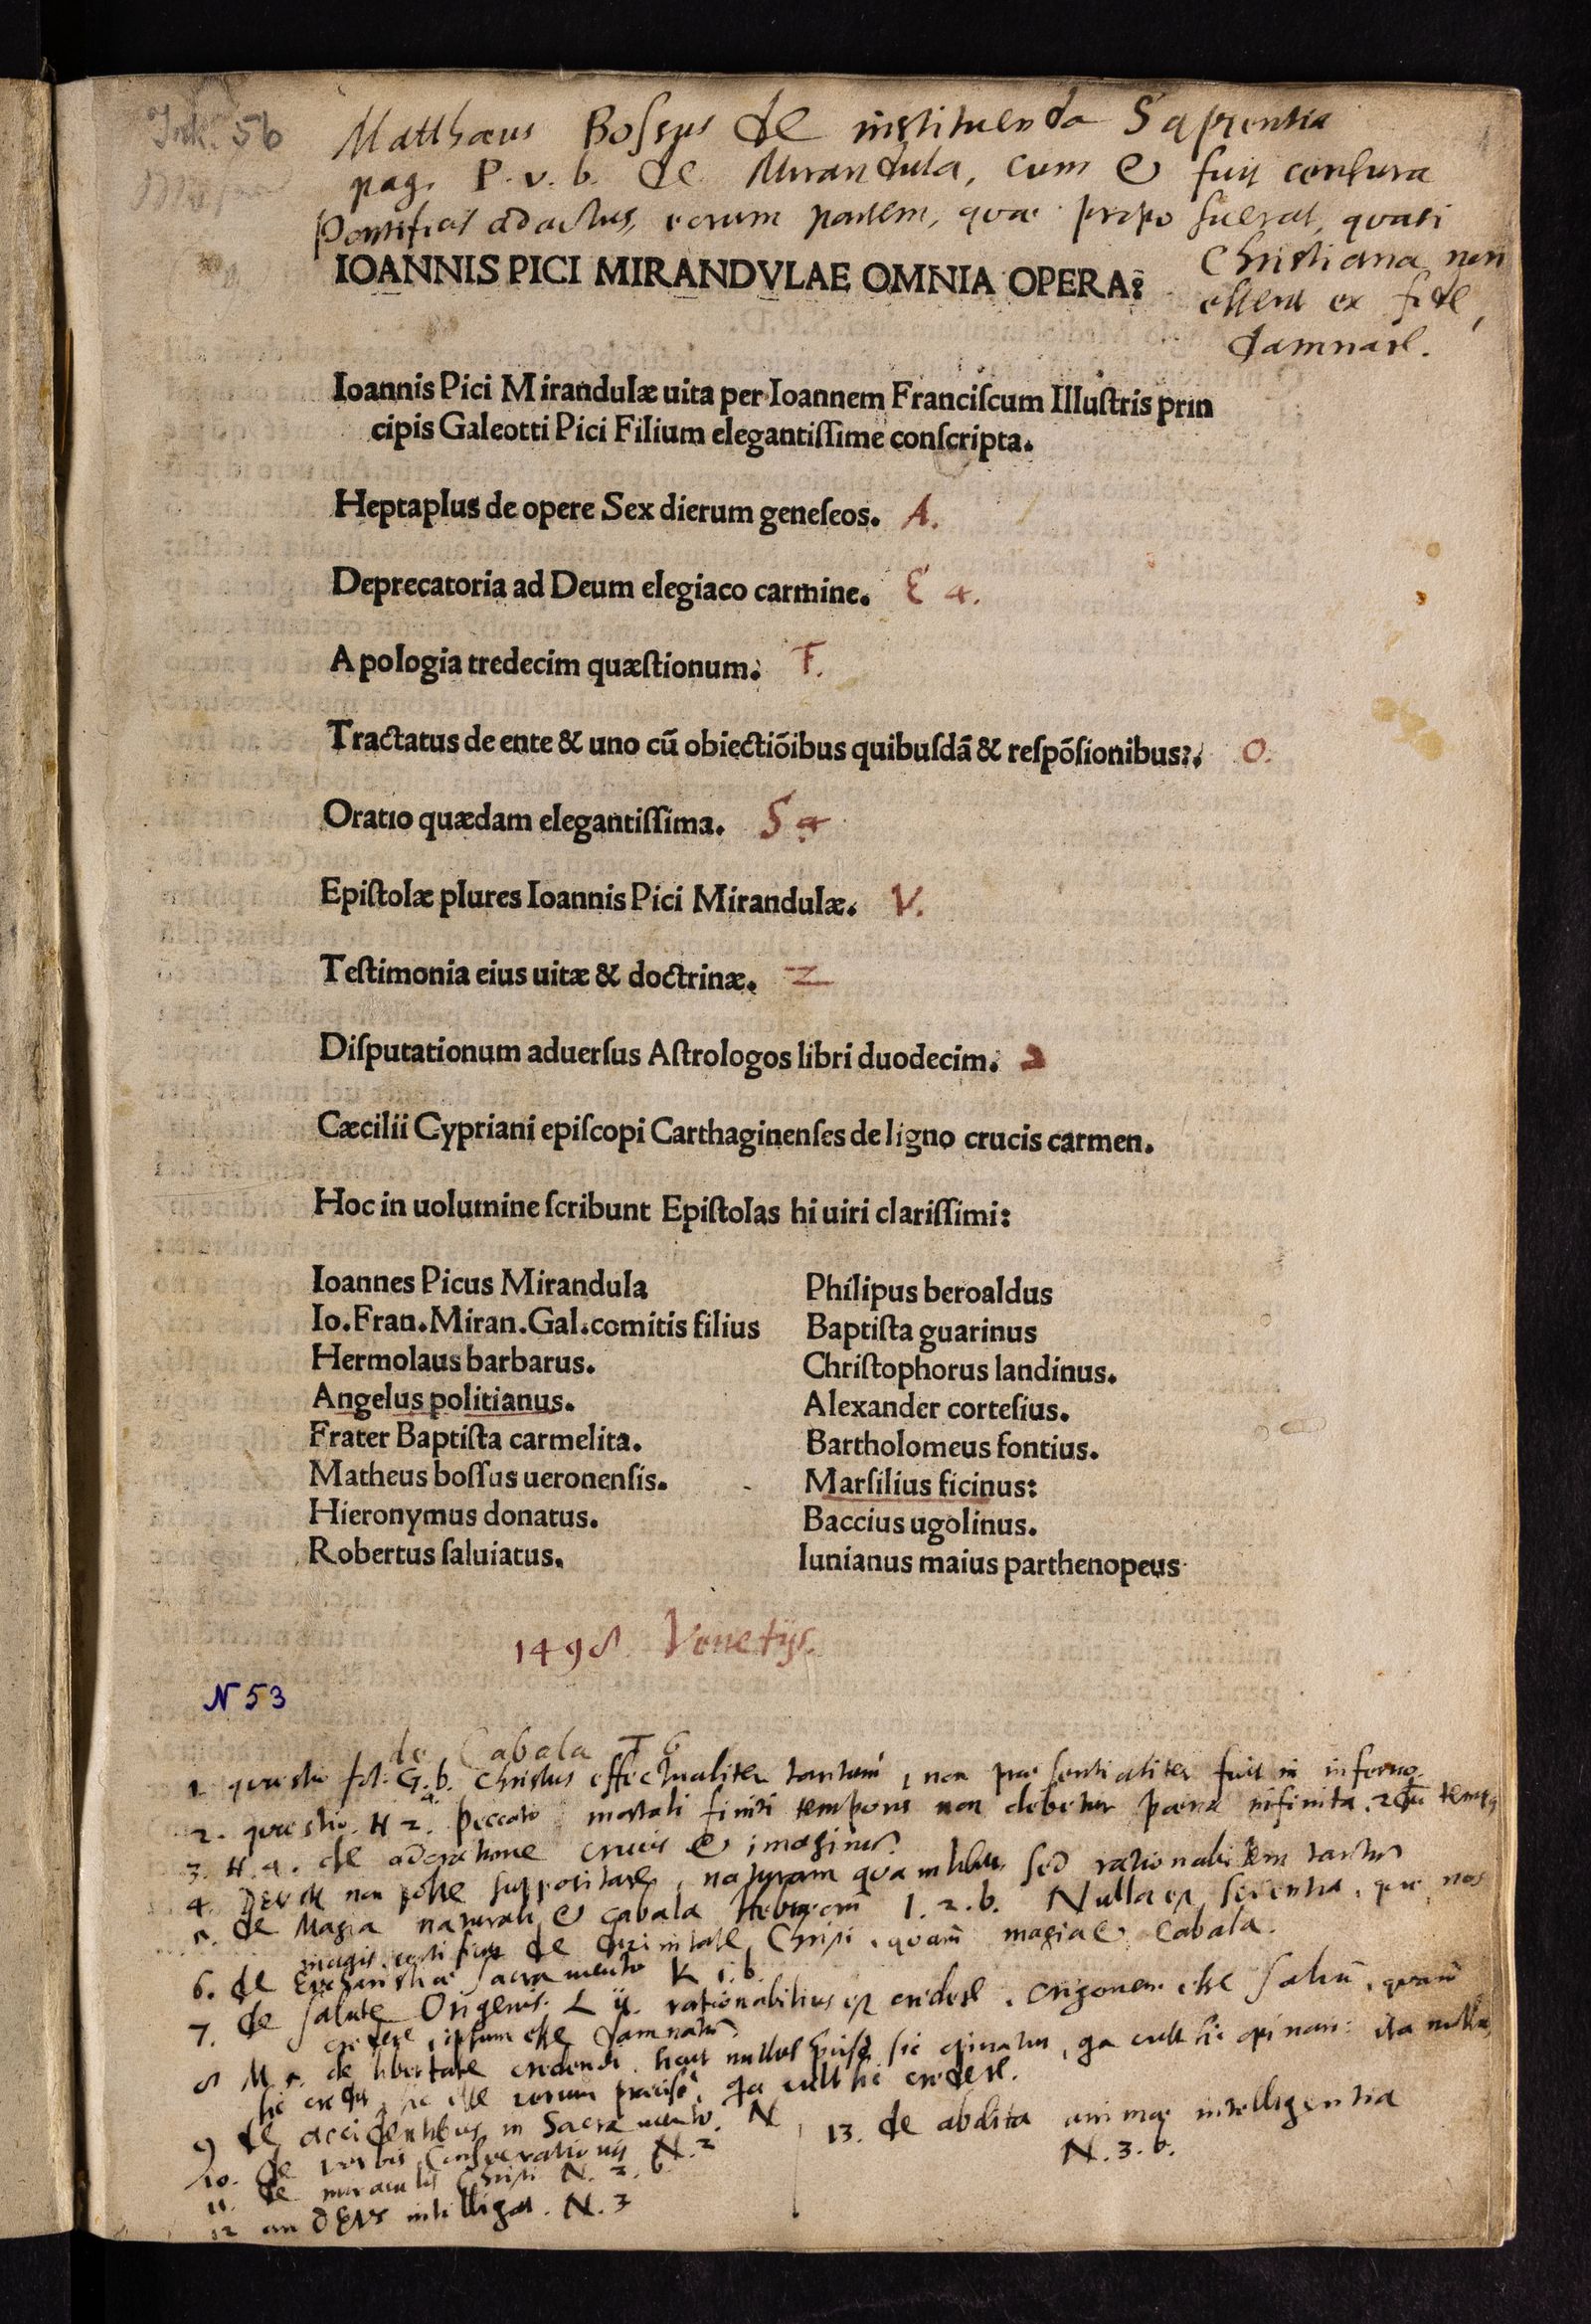 Ink. 56
Matthæus Bossus de instituenda Sapientia
pag. P. v. b. de Mirandula, cum & fuit censura
Pontificis adactus, eorum partem, quæ propo suerat, quasi
Christiana non
essent ex fide,
damnare.
IOANNIS PICI MIRANDVLAE OMNIA OPERA:
Ioannis Pici Mirandulæ uita per Ioannem Franciſcum Illuſtris prin
cipis Galeotti Pici Filium elegantiſſime conſcripta.
Heptaplus de opere Sex dierum geneſeos. A.
Deprecatoria ad Deum elegiaco carmine. E 4.
Apologia tredecim quæſtionum. F.
Tractatus de ente & uno cū obiectiōibus quibuſdā & reſpōſionibus. O.
Oratio quædam elegantiſſima. S 4
Epiſtolæ plures Ioannis Pici Mirandulæ. V.
Teſtimonia eius uitæ & doctrinæ. Z
Diſputationum aduerſus Aſtrologos libri duodecim.
Cæcilii Cypriani epiſcopi Carthaginenſes de ligno crucis carmen.
Hoc in uolumine ſcribunt Epiſtolas hi uiri clariſſimi:
Ioannes Picus Mirandula
Io.Fran.Miran.Gal.comitis filius
Hermolaus barbarus.
Angelus politianus.
Frater Baptiſta carmelita.
Matheus boſſus ueronenſis.
Hieronymus donatus.
Robertus ſaluiatus.
Philipus beroaldus
Baptiſta guarinus
Chriſtophorus landinus.
Alexander corteſius.
Bartholomeus fontius.
Marſilius ficinus:
Baccius ugolinus.
Iunianus maius parthenopeus
1498 Venetijs.
N 53
de Cabala I 6
1. quæstio fol. G. b. Christus effectualiter tantum, non præsentialiter fuit in inferno.
2. quæstio. H 2. Peccato mortali finiti temporis non debetur pœna infinita
3. H. 4. de adoratione crucis & imaginum
4. DEUM non posse suppositare, naturam sed rationabilem tantum
5. de Magia naturali & cabala Hebræorum I. 2. b. Nulla est scientia, quæ nos
magis certificet de divinitate Christi, quam magia & cabala.
6. de Eucharistiæ sacramento K 1. b.
7. de salute Origenis. L ij. rationabilius est credere, Origenem esse salvum, quam
credere, ipsum esse damnatum
8 M. 5. de libertate credendi. sicut nullus sic opinatur, qa vult sic opinari: ita nullus
sic credit, sic esse verum præcise, qa vult sic credere.
9 de accidentibus in Sacramento. N
10. de verbis Consecrationis N. 2
11. de miraculis Christi N. 2. b.
12 an DEUS intelligat. N. 3
13. de abdita animæ intelligentia
N. 3. b.